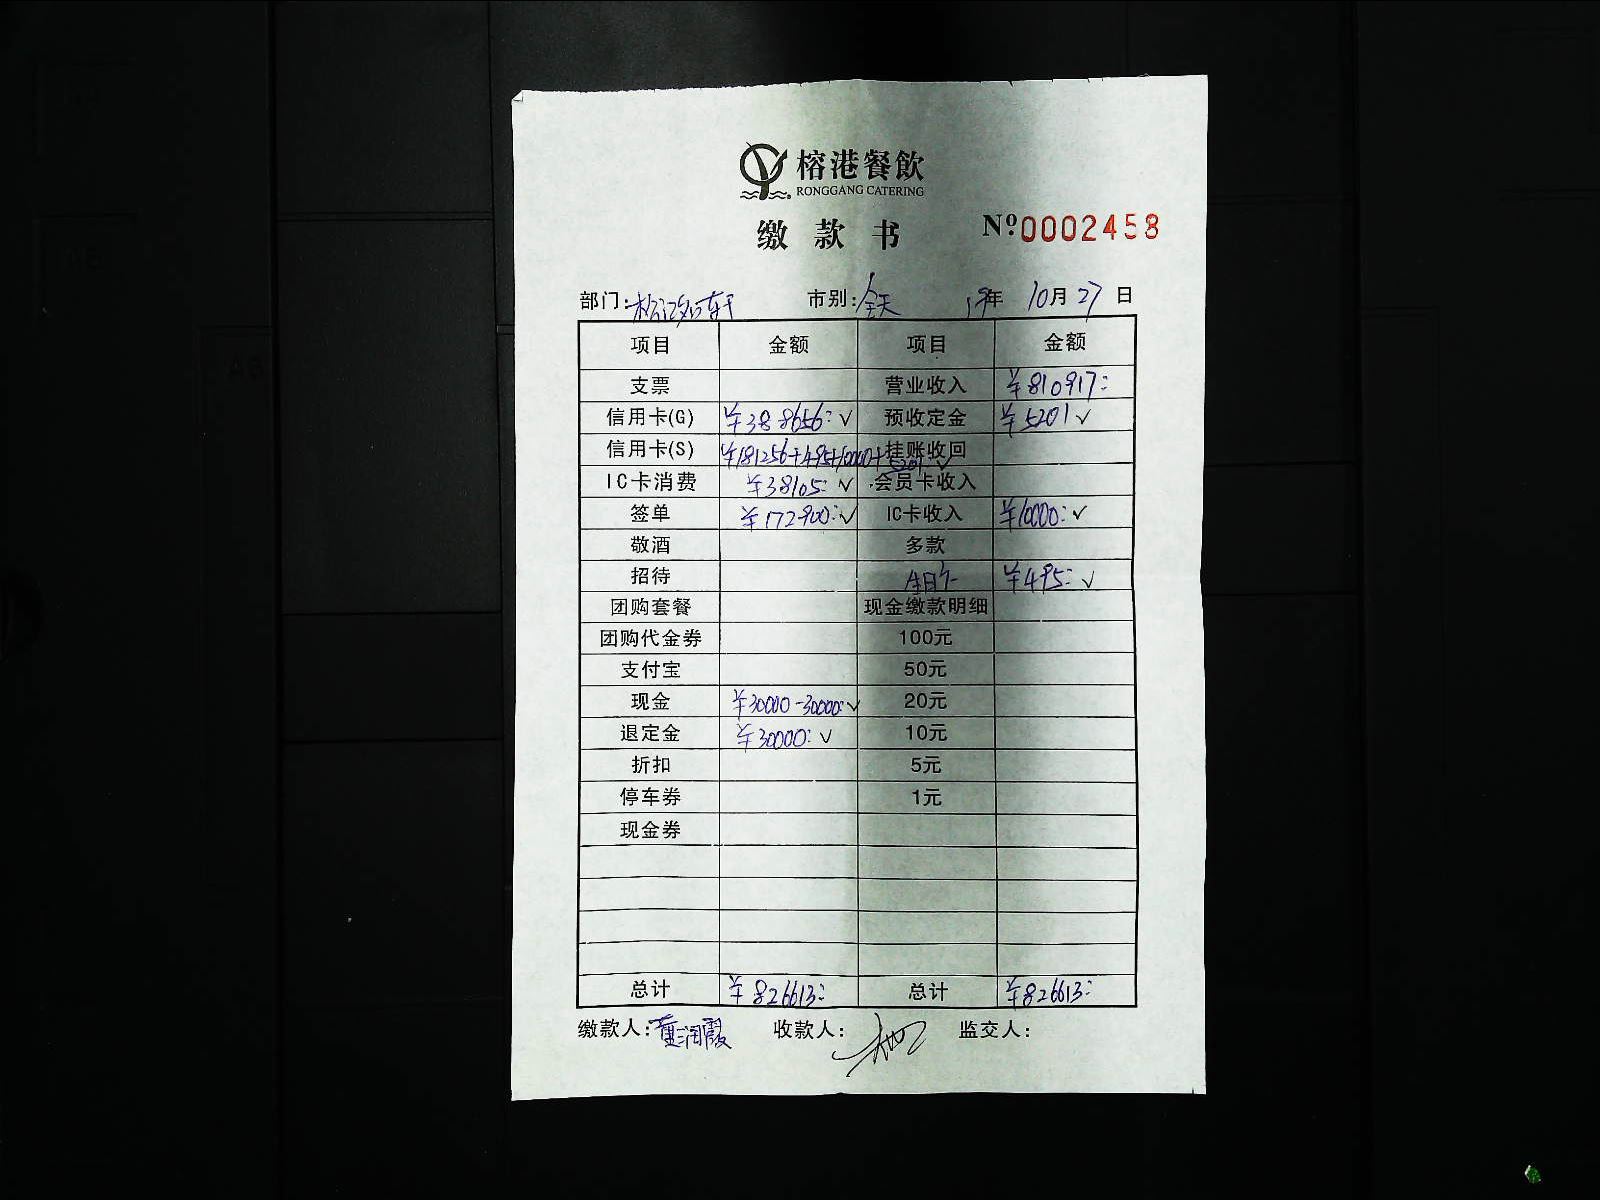 榕港餐飲
RONGGANG CATERING
缴款书 Nº0002458
部门: 市别:全天 19年 10月27日
项目 金额 项目 金额
支票 营业收入 ¥810917:
信用卡(G) ¥388656:✓ 预收定金 ¥5201✓
信用卡(S) ¥181256+495+10000+5201✓ 挂账收回
IC卡消费 ¥38105:✓ 会员卡收入
签单 ¥172900:✓ IC卡收入 ¥10000:✓
敬酒 多款
招待 ¥495:✓
团购套餐 现金缴款明细
团购代金券 100元
支付宝 50元
现金 ¥30000-30000:✓ 20元
退定金 ¥30000:✓ 10元
折扣 5元
停车券 1元
现金券
总计 ¥826613: 总计 ¥826613:
缴款人:董润霞 收款人: 监交人: